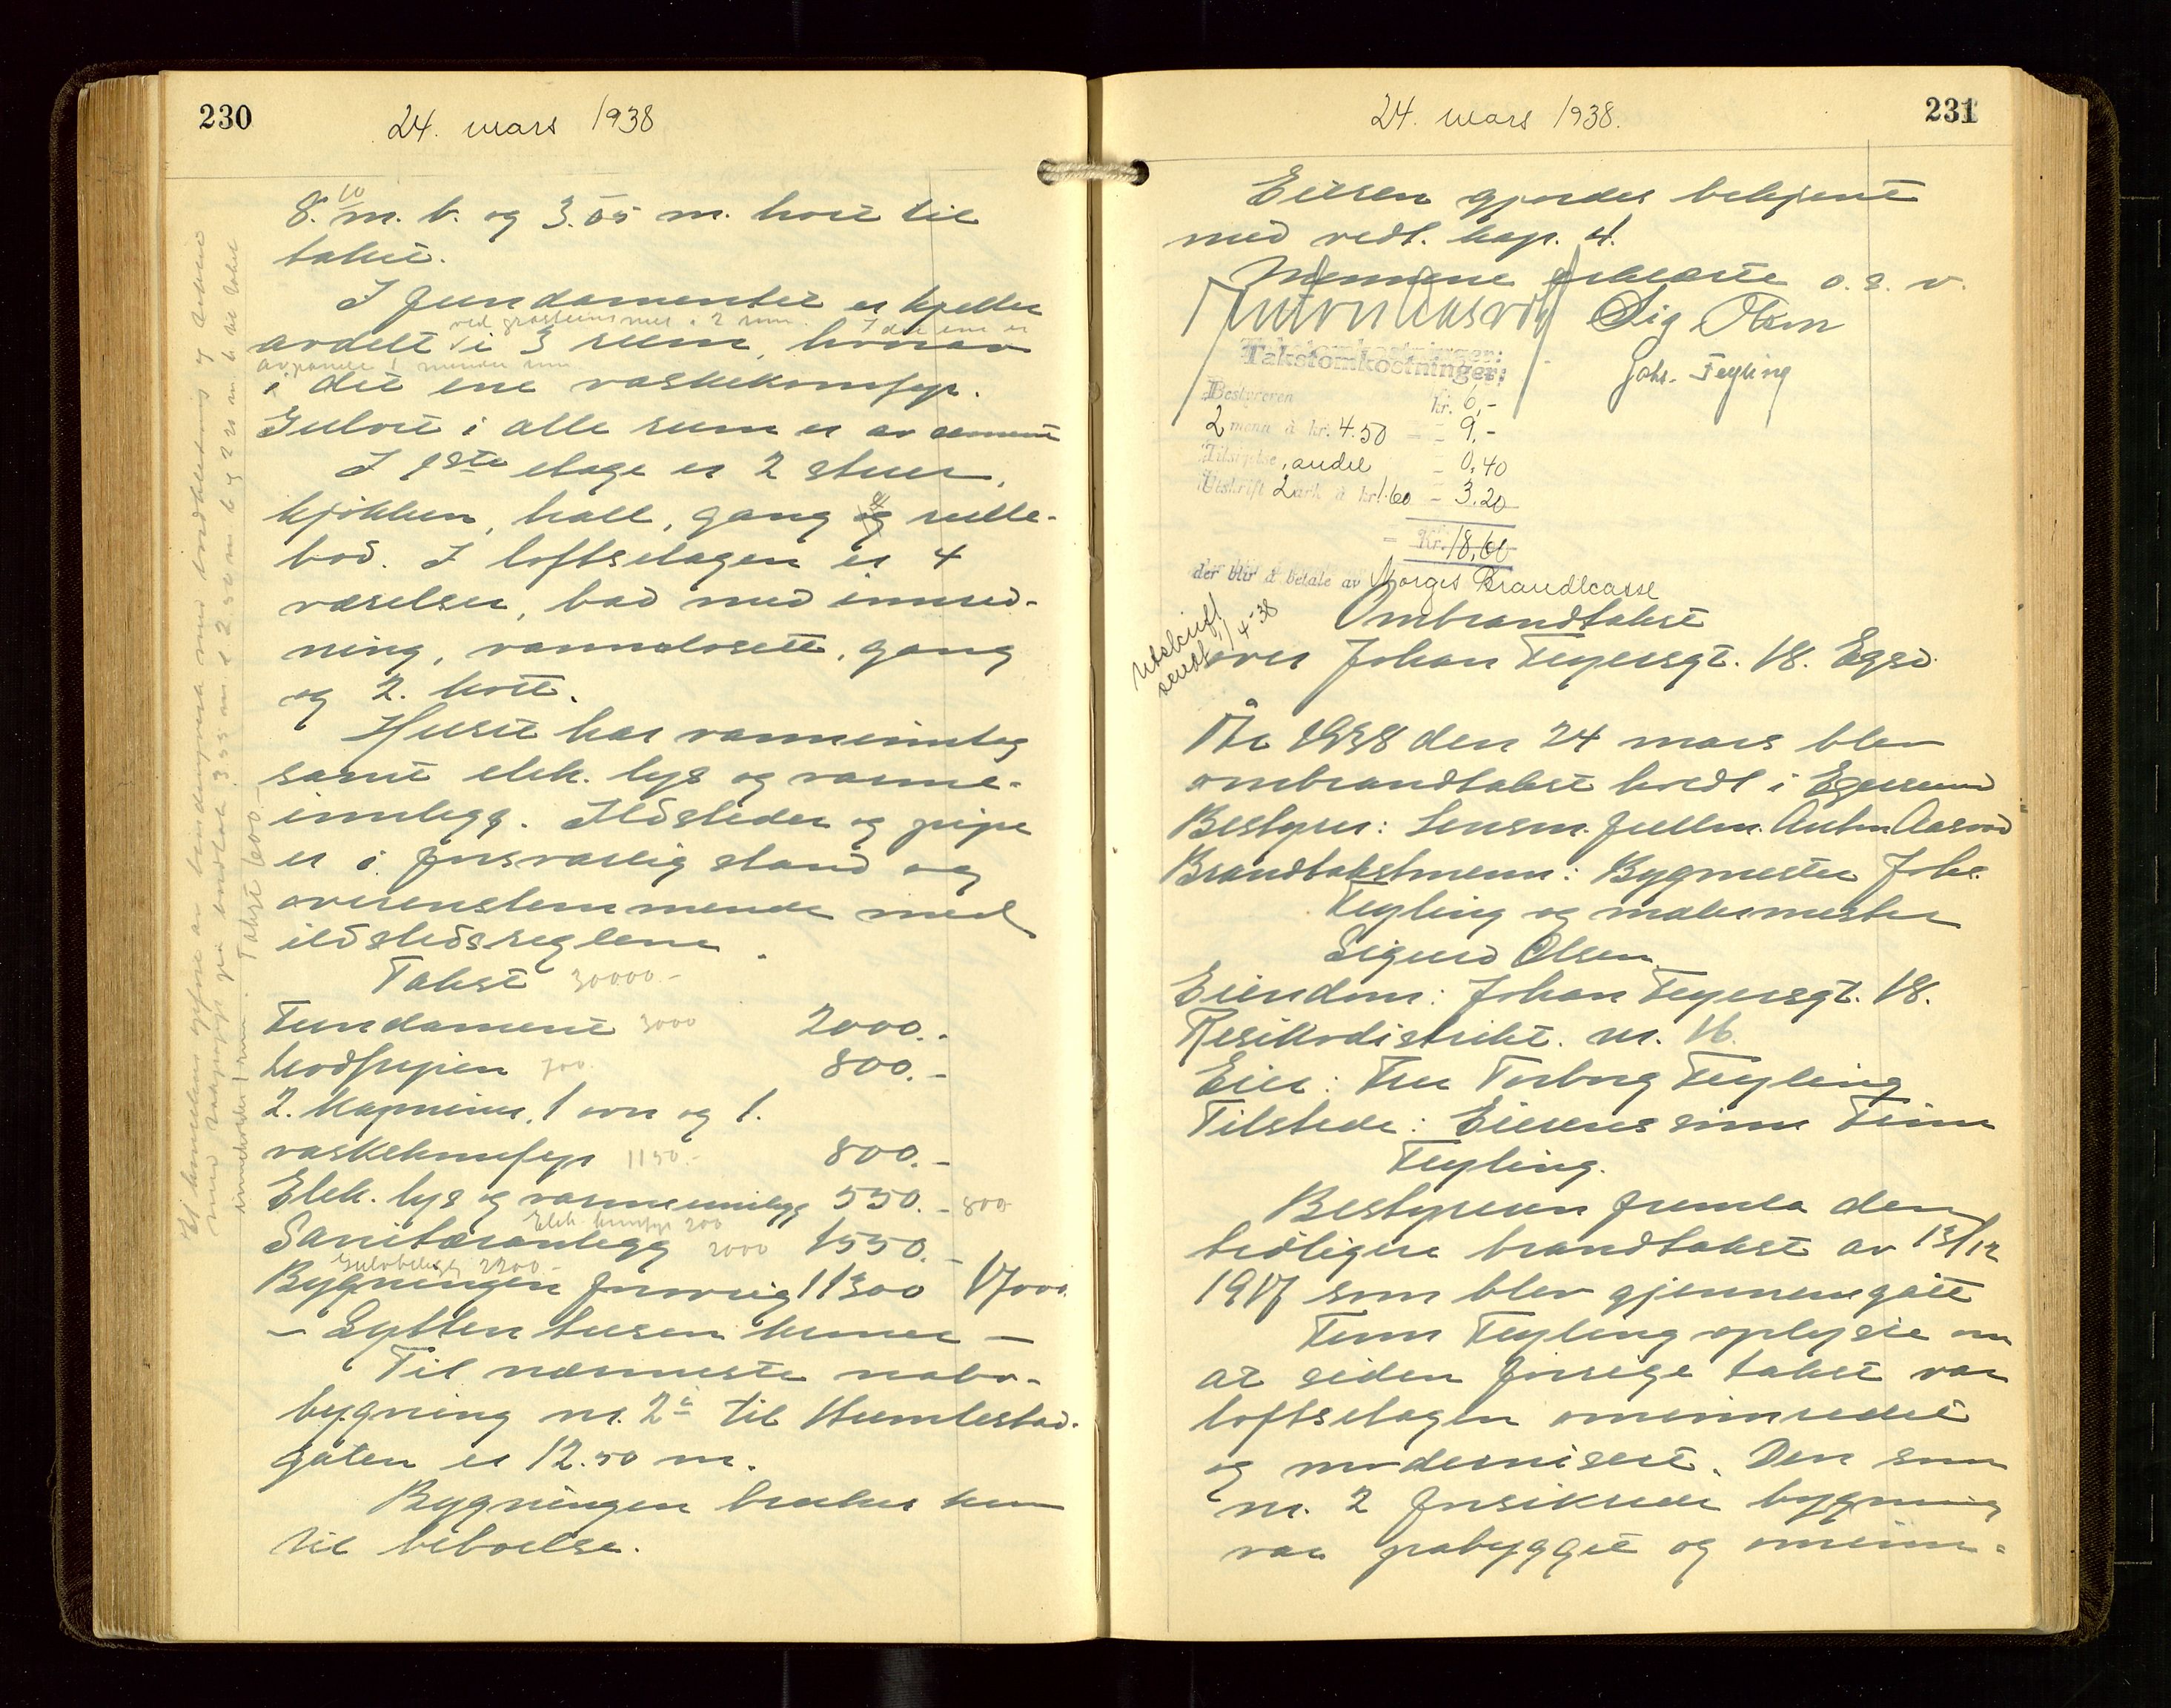 230
24. mars 1938
8.10 m. b. og 3.05 m. hoit til
takst.
I fundamentet er kjeller
ved gråsteinsmur i 2 rum. I det ene er
avdelt i 3 rum, hvorav
avpanelt 1 mindre rum
i det ene vaskekomfyr.
Gulvet i alle rum er av cement
I 1ste etage er 2 stuer,
kjøkken, hall, gang og rulle-
bod. I loftsetagen er 4
værelser, bad med innred-
ning, vannclosett, gang
og 2. kott.
Huset har vanninnlegg
samt elek. lys og varme-
innlegg. Ildsteder og pipe
er i forsvarlig stand og
overensstemmende med
ildstedsreglene.
Takst 30000.-
Fundament 3000 2000.-
Hvofpipen 700. 800.-
2. Kaminer, 1 ovn og 1.
vaskekomfyr 1150.- 800.-
Elek. lys og varmeinnlegg 550.- 800
Elek. komfyr 200
Sanitæranlegg 2000 1550.-
Gulvbelegg 2200.-
Bygningen forøvrig 11300 17000.
- Sytten tusen kroner -
Til nærmeste nabo-
bygning nr. 2a til Humlestad-
gaten er 12.50 m.
Bygningen brukes kun
til beboelse.
Takst 600.-
231
24. mars 1938.
Eieren gjordes bekjent
med vedt. kap. 4.
Mennene erklærte o.s.v.
Anton Aasrod Sig Olsen
Johs. Feyling
Takstomkostninger:
Bestyreren kr. 6,-
2 menn à kr. 4.50 - - 9,-
Tilsigelse, andel - 0,40
Utskrift 2 ark à kr 1.60 - 3.20
= Kr. 18,60
der blir å betale av Norges Brandkasse
Utskrift
sendt 1/4-38
Ombrandtakst
over Johan Feyersgt. 18. Egsd.
År 1938 den 24 mars blev
ombrandtakst holdt i Egersund
Bestyrer: Lensm. fullm. Anton Aasrod
Brandtakstmenn: Bygmester Johs.
Feyling og malermester
Sigurd Olsen
Eiendom: Johan Feyersgt. 18.
Resikodistrikt. nr. 16.
Eier: Fru Torborg Feyling
Tilstede: Eierens sønn Finn
Feyling.
Bestyreren fremla den
tidligere brandtakst av 13/12
1917 som blev gjennemgått
Finn Feyling oplyste om
at siden forrige takst var
loftsetagen ominnredet
og modernisert. Den som
nr. 2 forsikrede bygning
var påbygget og ominn-